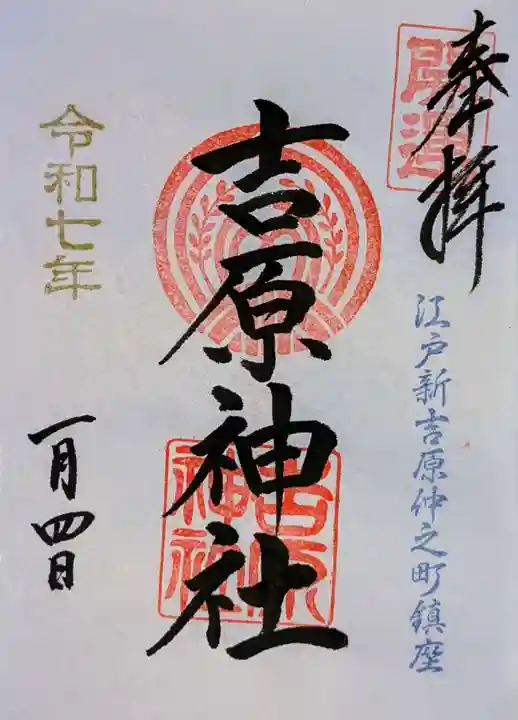 奉拝
開運
江戸新吉原仲之町鎮座
吉原神社
吉原神社
令和七年
一月四日